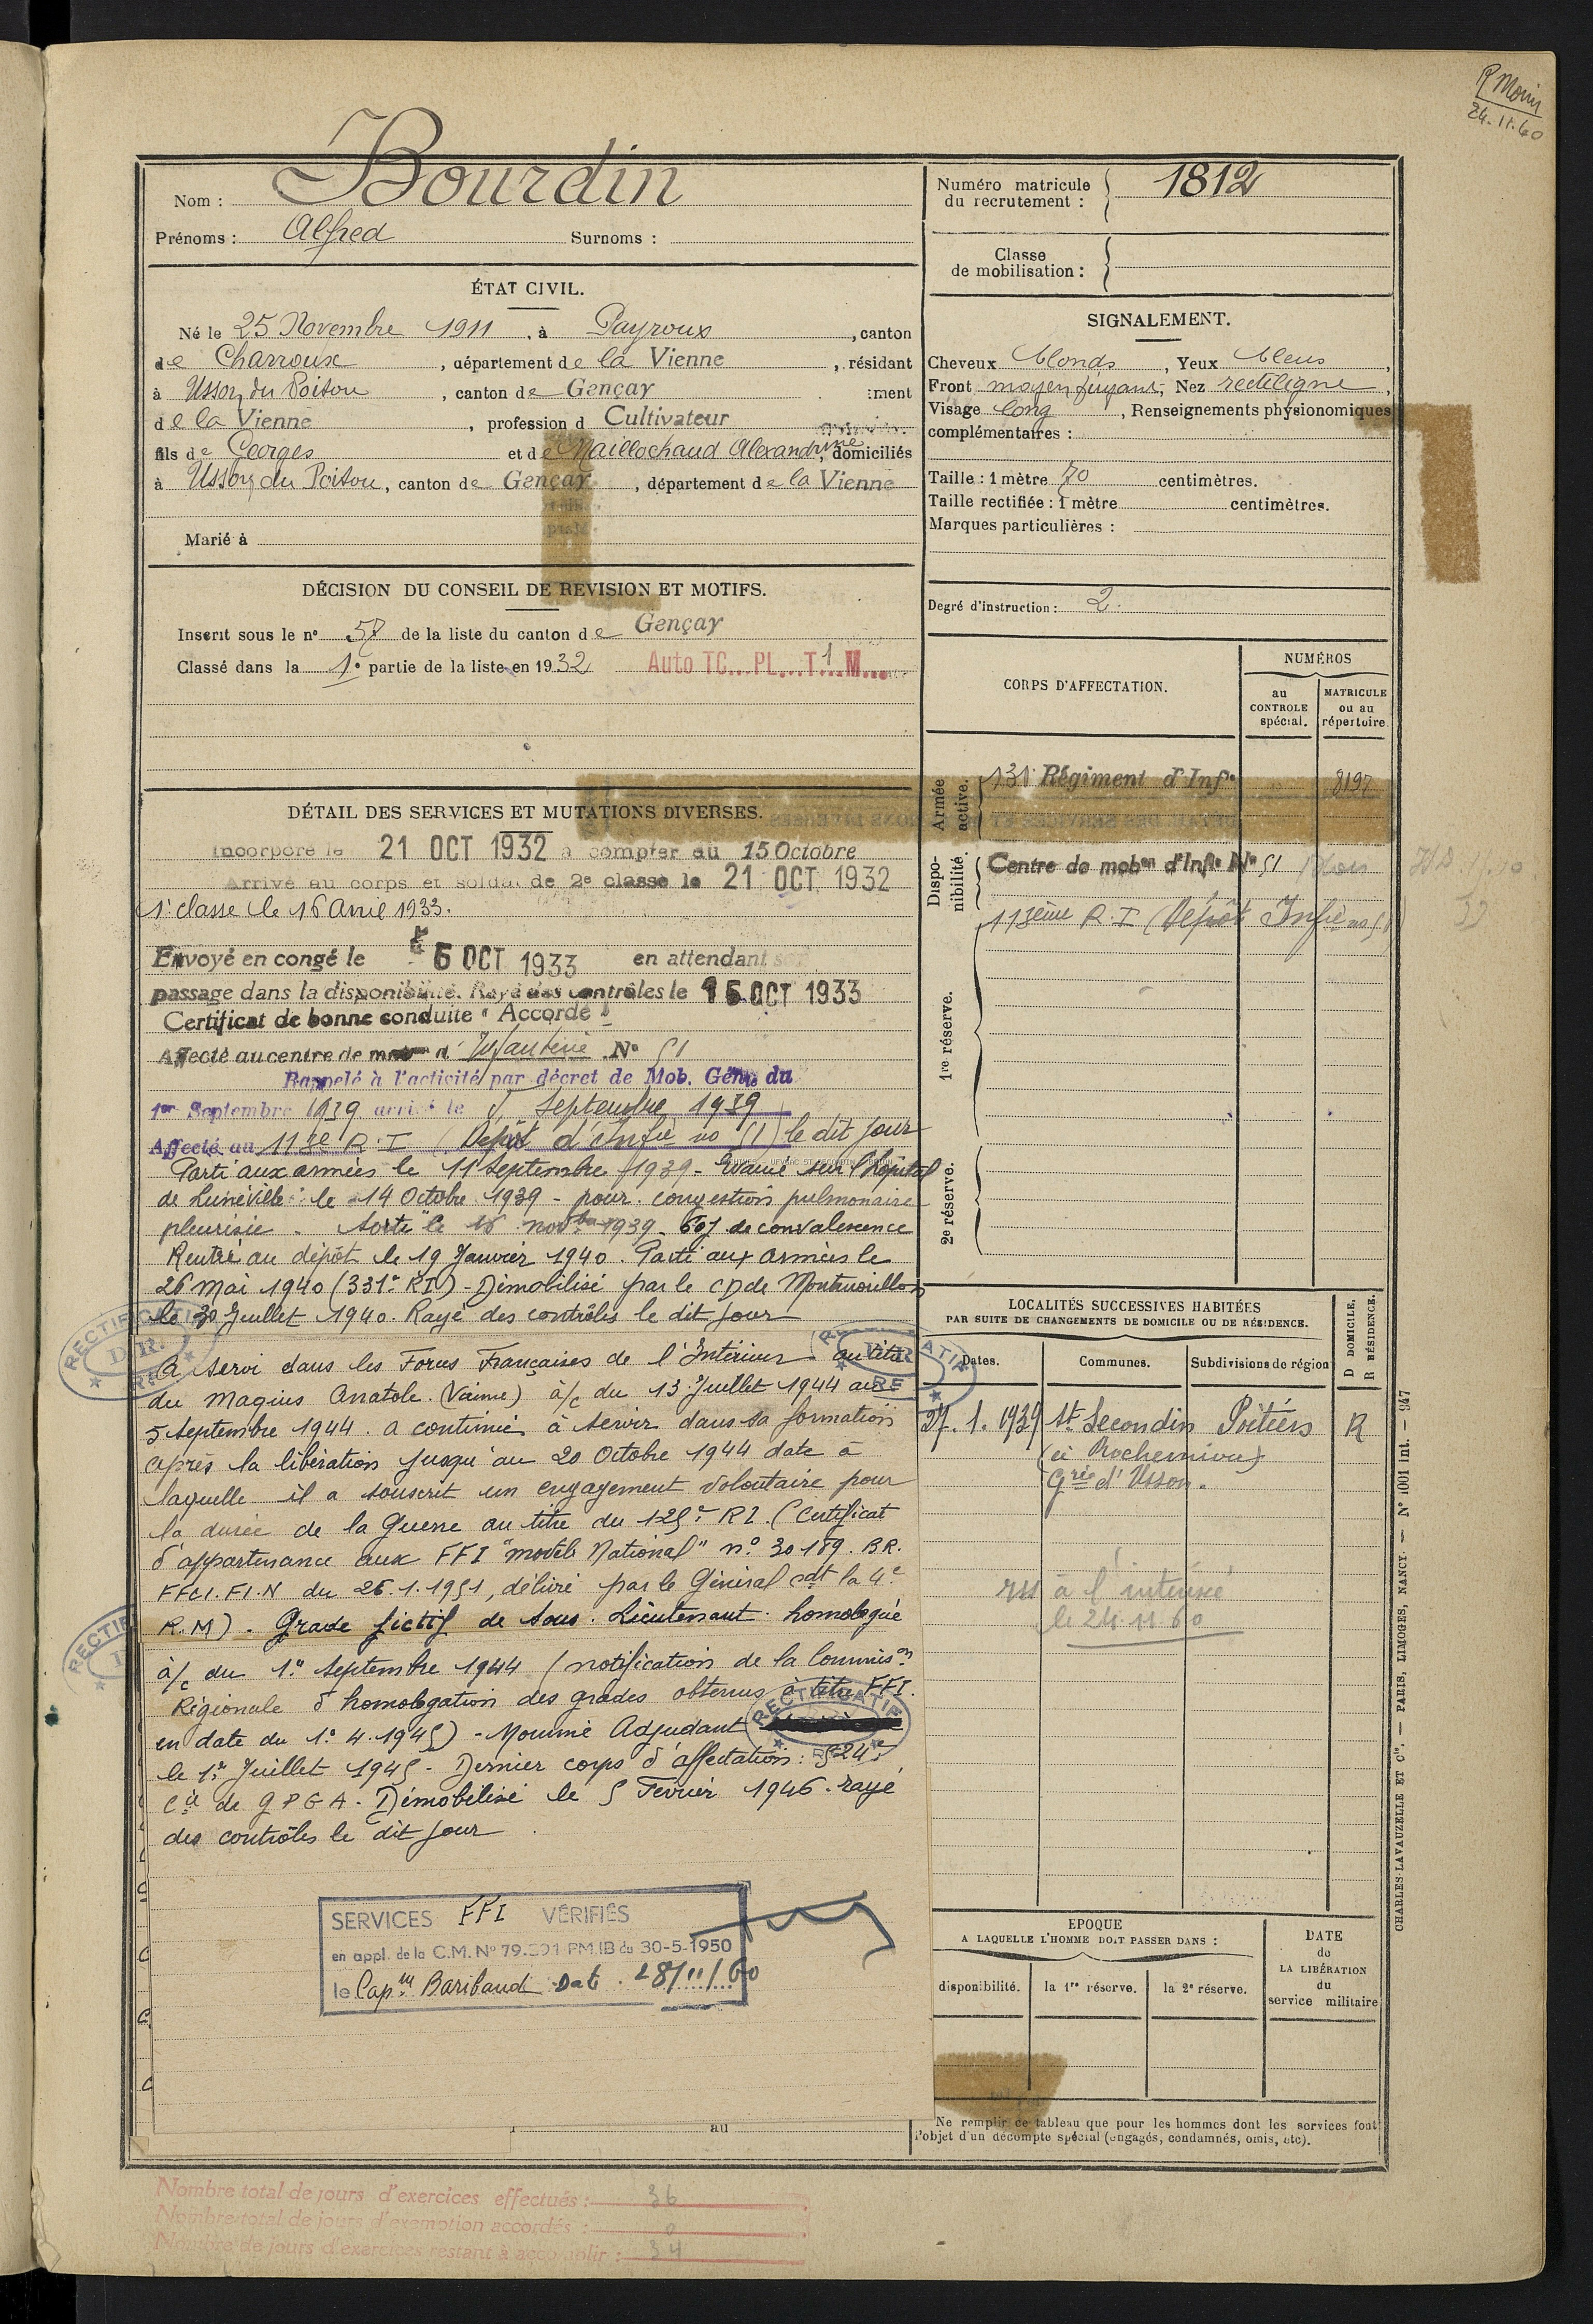 R Morin
24.11.60
Nom : Bourdin
Prénoms : Alfred Surnoms :
Numéro matricule du recrutement : 1812
Classe de mobilisation :
ÉTAT CIVIL.
Né le 25 Novembre 1911, à Payroux, canton
de Charroux, département de la Vienne, résidant
à Usson du Poitou, canton de Gençay
de la Vienne, profession d Cultivateur
fils de Georges et de Maillochaud Alexandrine, domiciliés
à Usson du Poitou, canton de Gençay, département de la Vienne
Marié à
SIGNALEMENT.
Cheveux blonds, Yeux bleus,
Front moyen fuyant, Nez rectiligne,
Visage long, Renseignements physionomiques
complémentaires :
Taille : 1 mètre 70 centimètres.
Taille rectifiée : 1 mètre centimètres.
Marques particulières :
Degré d'instruction : 2.
DÉCISION DU CONSEIL DE REVISION ET MOTIFS.
Inscrit sous le n° 57 de la liste du canton de Gençay
Classé dans la 1e partie de la liste en 1932 Auto TC...PL...T 1 M...
CORPS D'AFFECTATION.
NUMÉROS
au CONTROLE spécial.
MATRICULE ou au répertoire.
Armée active.
131e Régiment d'Infie 8197
Dispo-nibilité.
Centre de mobon d'Infie No 51
113ème R.I (Dépôt Infie no 51)
1re réserve.
2e réserve.
DÉTAIL DES SERVICES ET MUTATIONS DIVERSES.
Incorporé le 21 OCT 1932 à compter du 15 Octobre
Arrivé au corps et soldat de 2e classe le 21 OCT 1932
1e classe le 16 Avril 1933.
Envoyé en congé le 6 OCT 1933 en attendant son
passage dans la disponibilité. Rayé des contrôles le 15 OCT 1933
Certificat de bonne conduite "Accordé"
Affecté au centre de mobon d'Infanterie No 51
Rappelé à l'activité par décret de Mob. Génle du
1er Septembre 1939 arrivé le 5 Septembre 1939
Affecté au 113e R.I (Dépôt d'Infie no 51) le dit jour
Parti aux armées le 11 Septembre 1939 - Evacué sur l'hôpital
de Lunéville le 14 Octobre 1939 - pour congestion pulmonaire
pleurisie - Sorti le 16 novbre 1939. 60j de convalescence
Rentré au dépôt le 19 Janvier 1940. Parti aux armées le
26 Mai 1940 (331e RI) - Démobilisé par le CD de Montmorillon
le 30 Juillet 1940. Rayé des contrôles le dit jour
A servi dans les Forces Françaises de l'Intérieur au titre
du Maquis Anatole (Vienne) à/c du 13 Juillet 1944 au
5 Septembre 1944. a continué à servir dans sa formation
après la libération jusqu'au 20 Octobre 1944 date à
laquelle il a souscrit un engagement volontaire pour
la durée de la Guerre au titre du 125e RI. (Certificat
d'appartenance aux FFI "modèle National" n° 30189. BR.
FFCI.FI.N du 26.1.1951, délivré par le Général Cdt la 4e
R.M) - Grade fictif de Sous. Lieutenant homologué
à/c du 1er Septembre 1944 (notification de la Commison
Régionale d'homologation des grades obtenus à titre FFI.
en date du 1er 4.1945) - Nommé Adjudant
le 1er Juillet 1945 - Dernier corps d'affectation : 524e
Cie de GPGA - Démobilisé le 5 Février 1946. rayé
des contrôles le dit jour.
RECTIFICATIF
RECTIFICATIF
LOCALITÉS SUCCESSIVES HABITÉES
PAR SUITE DE CHANGEMENTS DE DOMICILE OU DE RÉSIDENCE.
D DOMICILE. R RÉSIDENCE.
Dates. Communes. Subdivisions de région
27.1.1939 St Secondin Poitiers R
Grie d'Usson.
à l'intéressé
le 24.11.60
SERVICES FFI VÉRIFIÉS
en appl. de la C.M. N° 79.391 PM.IB du 30-5-1950
le Capne Baribaud Dat. 28/11/60
EPOQUE
A LAQUELLE L'HOMME DOIT PASSER DANS :
disponibilité. la 1re réserve. la 2e réserve.
DATE de LA LIBÉRATION du service militaire
au
Ne remplir ce tableau que pour les hommes dont les services font
l'objet d'un décompte spécial (engagés, condamnés, omis, etc).
Nombre total de jours d'exercices effectués : 36
Nombre total de jours d'exemption accordés : 0
Nombre de jours d'exercices restant à accomplir : 34
CHARLES-LAVAUZELLE ET Cie. — PARIS, LIMOGES, NANCY. — N° 1001 Int. — 947